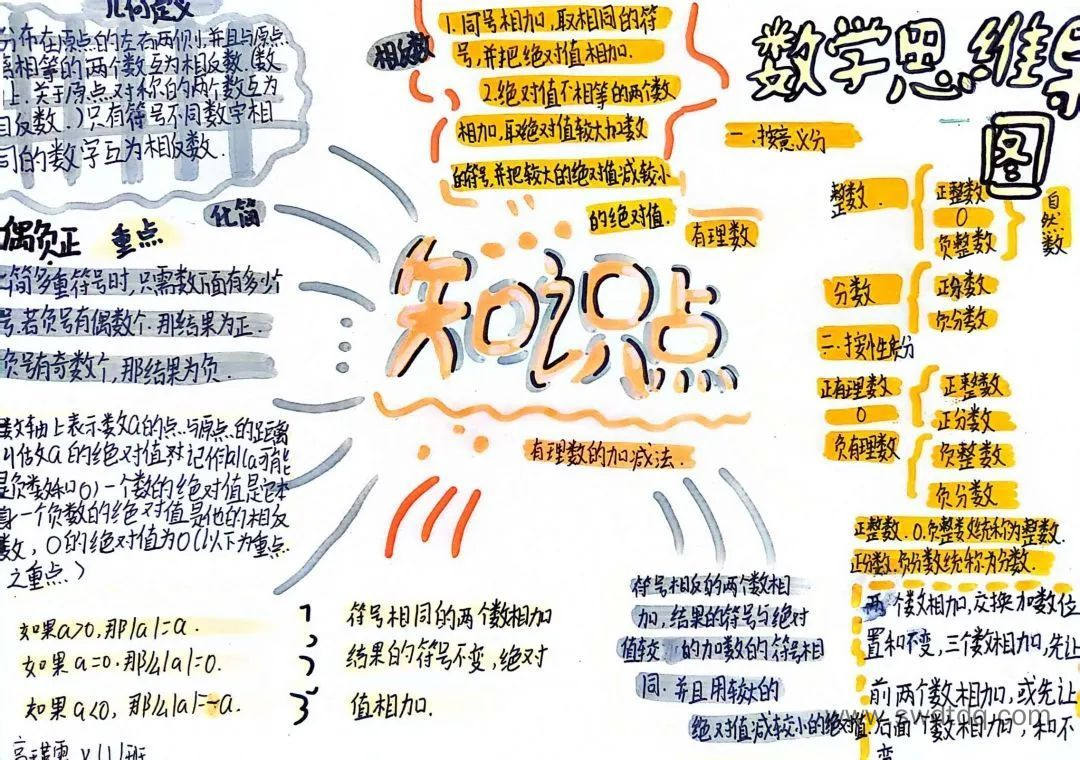 数学思维导
图
几何定义
分布在原点的左右两侧,并且与原点
离相等的两个数互为相反数(数
上.关于原点对称的两个数互为
相反数.)只有符号不同数字相
同的数字互为相反数.
相反数
1.同号相加,取相同的符
号,并把绝对值相加.
2.绝对值不相等的两个数
相加,取绝对值较大加数
的符号,并把较大的绝对值减较小
的绝对值.
有理数
一.按意义分
整数.
正整数
0
负整数
自然数
分数
正分数
负分数
二.按性质分
正有理数
0
负有理数
正整数
正分数
负整数
负分数
正整数.0.负整数统称为整数.
正分数.负分数统称为分数.
化简
偶负正 重点
简多重符号时,只需数前面有多少个
号.若负号有偶数个.那结果为正.
负号有奇数个,那结果为负.
知识点
有理数的加减法.
数轴上表示数a的点与原点的距离
a的绝对值 记作|a|(a可能
是负数和0)一个数的绝对值是它本
身一个负数的绝对值是他的相反
数,0的绝对值为0(以下为重点
之重点)
如果a>0,那|a|=a.
如果a=0.那么|a|=0.
如果a<0,那么|a|=-a.
符号相同的两个数相加
结果的符号不变,绝对
值相加.
符号相反的两个数相
加,结果的符号与绝对
值较 的加数的符号相
同.并且用较大的
绝对值减较小的绝对值.
两个数相加,交换加数位
置和不变,三个数相加,先让
前两个数相加,或先让
后面个数相加,和不
变
www.swdtdq.com